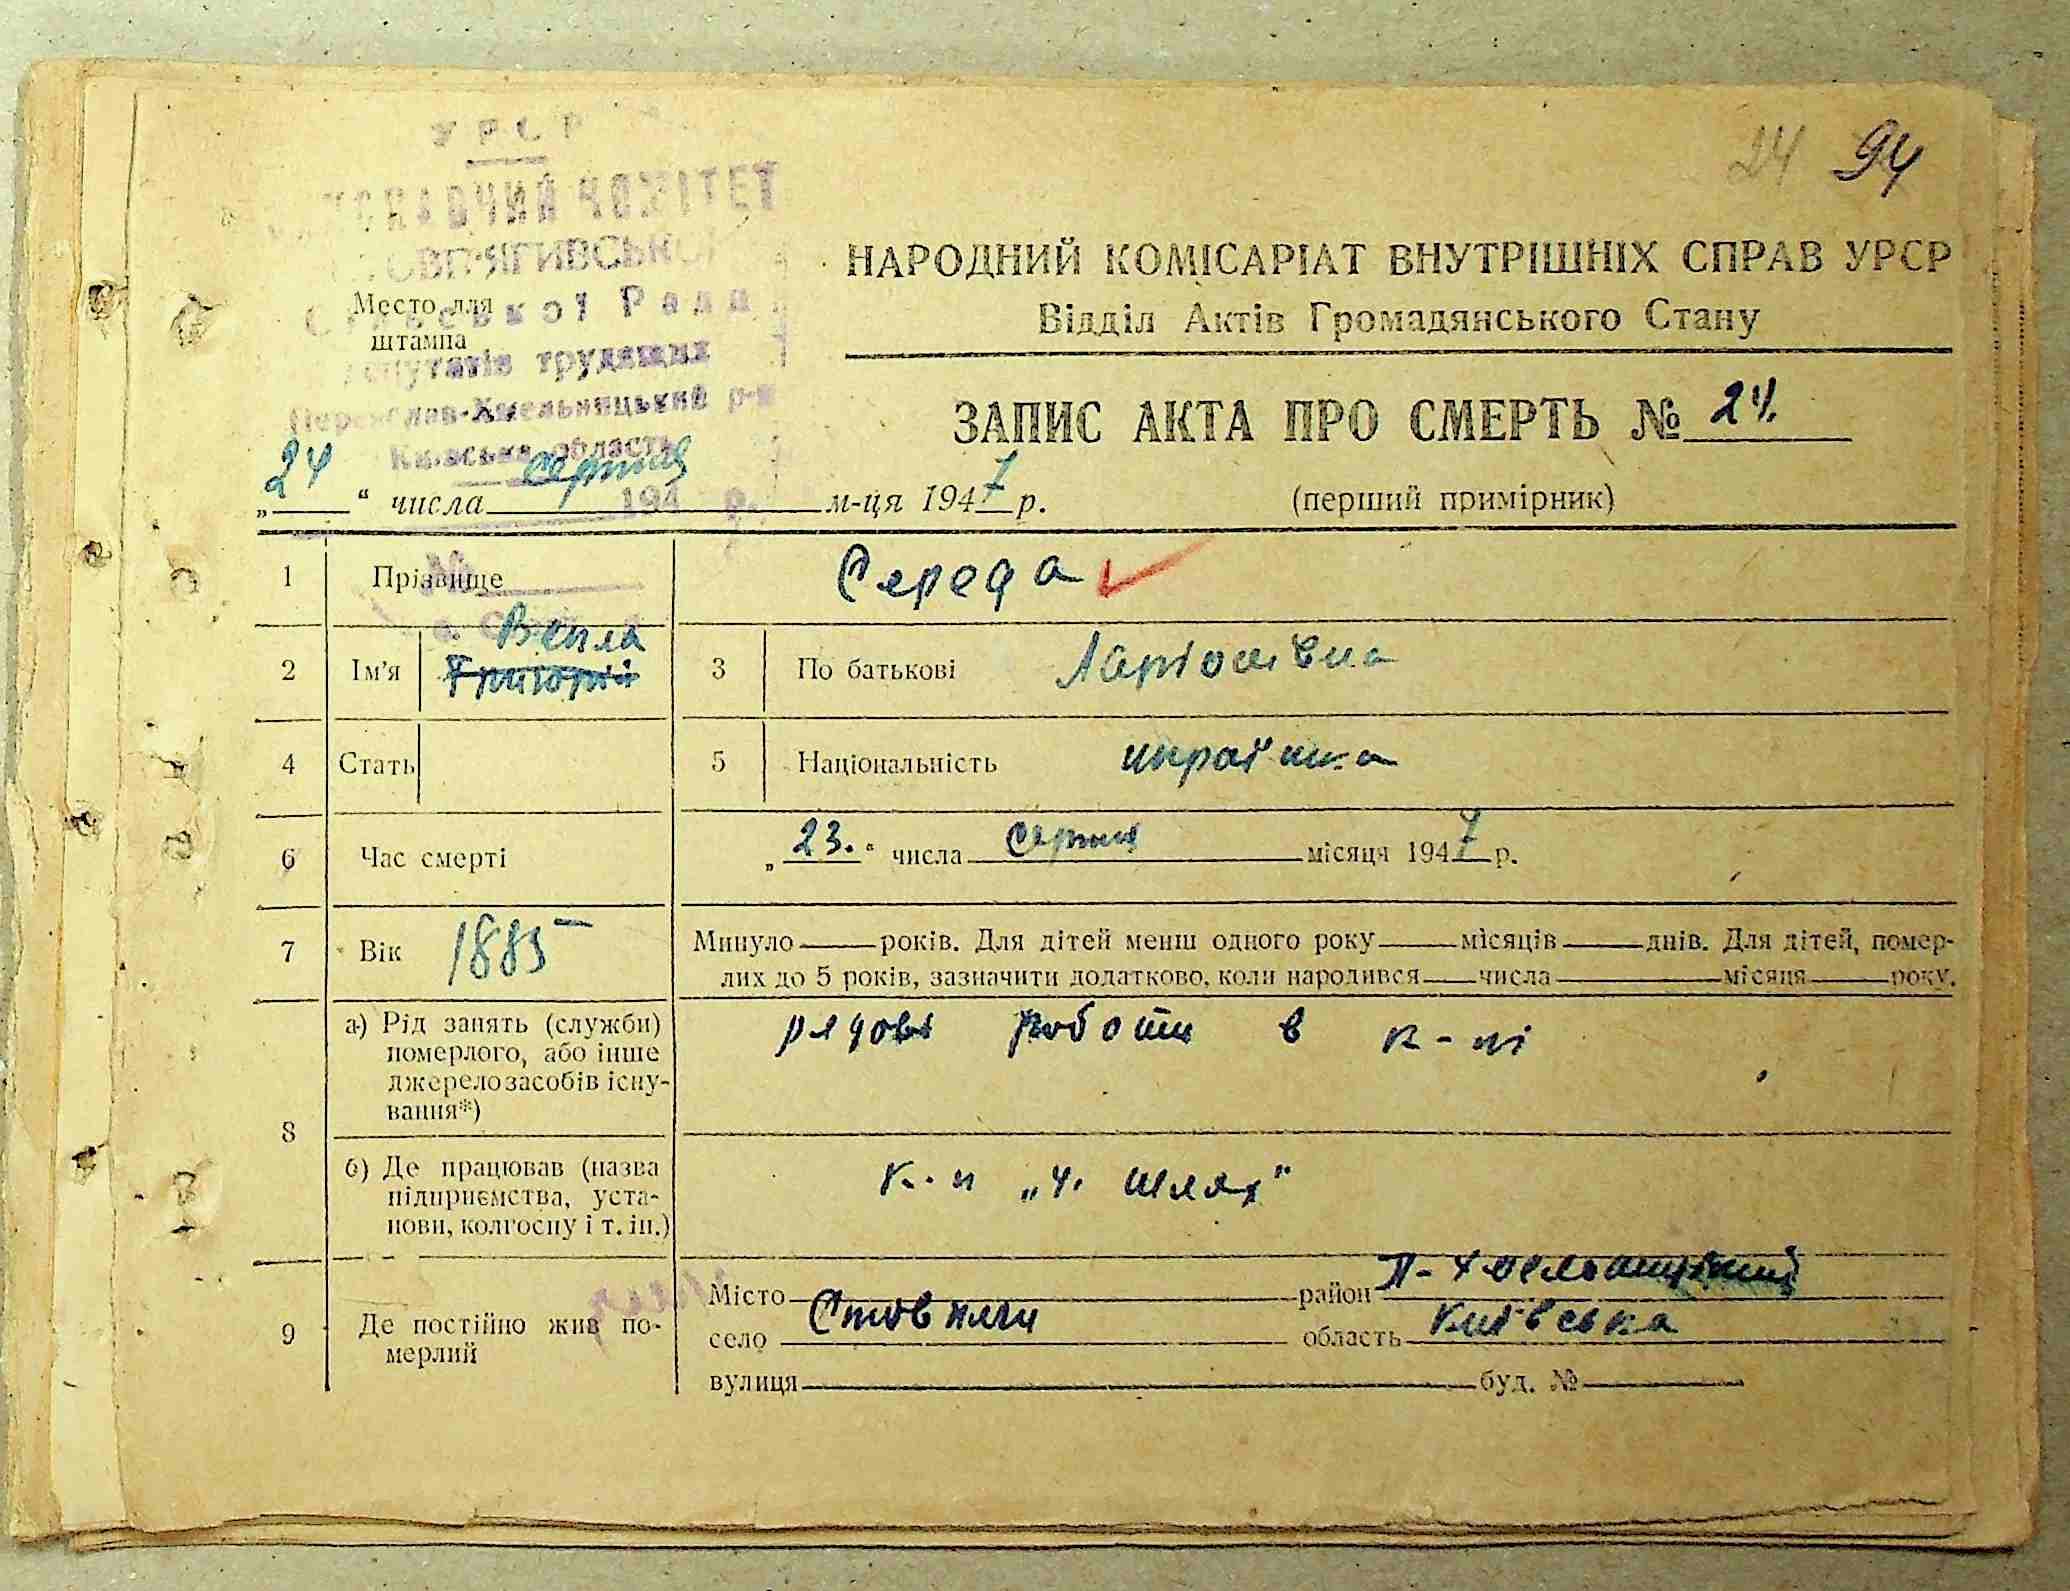 24 94
УРСР
ВИКОНАВЧИЙ КОМІТЕТ
СТОВП'ЯГИВСЬКОЇ
Сільської Ради
депутатів трудящих
Переяслав-Хмельницький р-н
Київська область
194 р.
№
Место для
штампа
НАРОДНИЙ КОМІСАРІАТ ВНУТРІШНІХ СПРАВ УРСР
Відділ Актів Громадянського Стану
ЗАПИС АКТА ПРО СМЕРТЬ № 24.
„24“ числа серпня м-ця 1947 р.
(перший примірник)
1 Прізвище Середа
2 Ім'я Григорій 3 По батькові Ларіонівна
4 Стать 5 Національність українка
6 Час смерті „23.“ числа Серпня місяця 1947 р.
7 Вік 1885 Минуло років. Для дітей менш одного року місяців днів. Для дітей, помер-
лих до 5 років, зазначити додатково, коли народився числа місяця року.
8 а) Рід занять (служби)
померлого, або інше
джерело засобів існу-
вання*)
рядові роботи в к-пі
б) Де працював (назва
підприємства, уста-
нови, колгоспу і т. ін.)
к-п „Ч. шлях"
9 Де постійно жив по-
мерлий
Місто район П-Хмельницький
село Стовпяги область Київська
вулиця буд. №